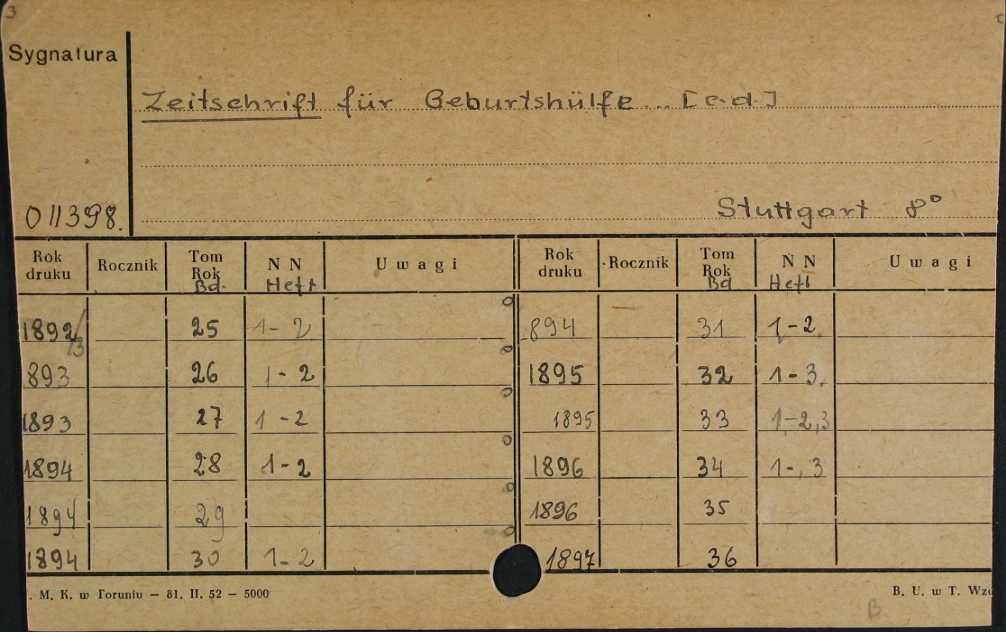 3
Sygnatura
Zeitschrift für Geburtshülfe... [c.d.]
011398.
Stuttgart 8°
Rok druku Rocznik Tom Rok Bd. NN Heft Uwagi Rok druku Rocznik Tom Rok Bd NN Heft Uwagi
1892/3 25 1-2 894 31 1-2
893 26 1-2 1895 32 1-3.
1893 27 1-2 1895 33 1-2,3
1894 28 1-2 1896 34 1-,3
1894 29 1896 35
1894 30 1-2 1897 36
. M. K. w Toruniu — 81. II. 52 — 5000
B. U. w T. Wzó
B